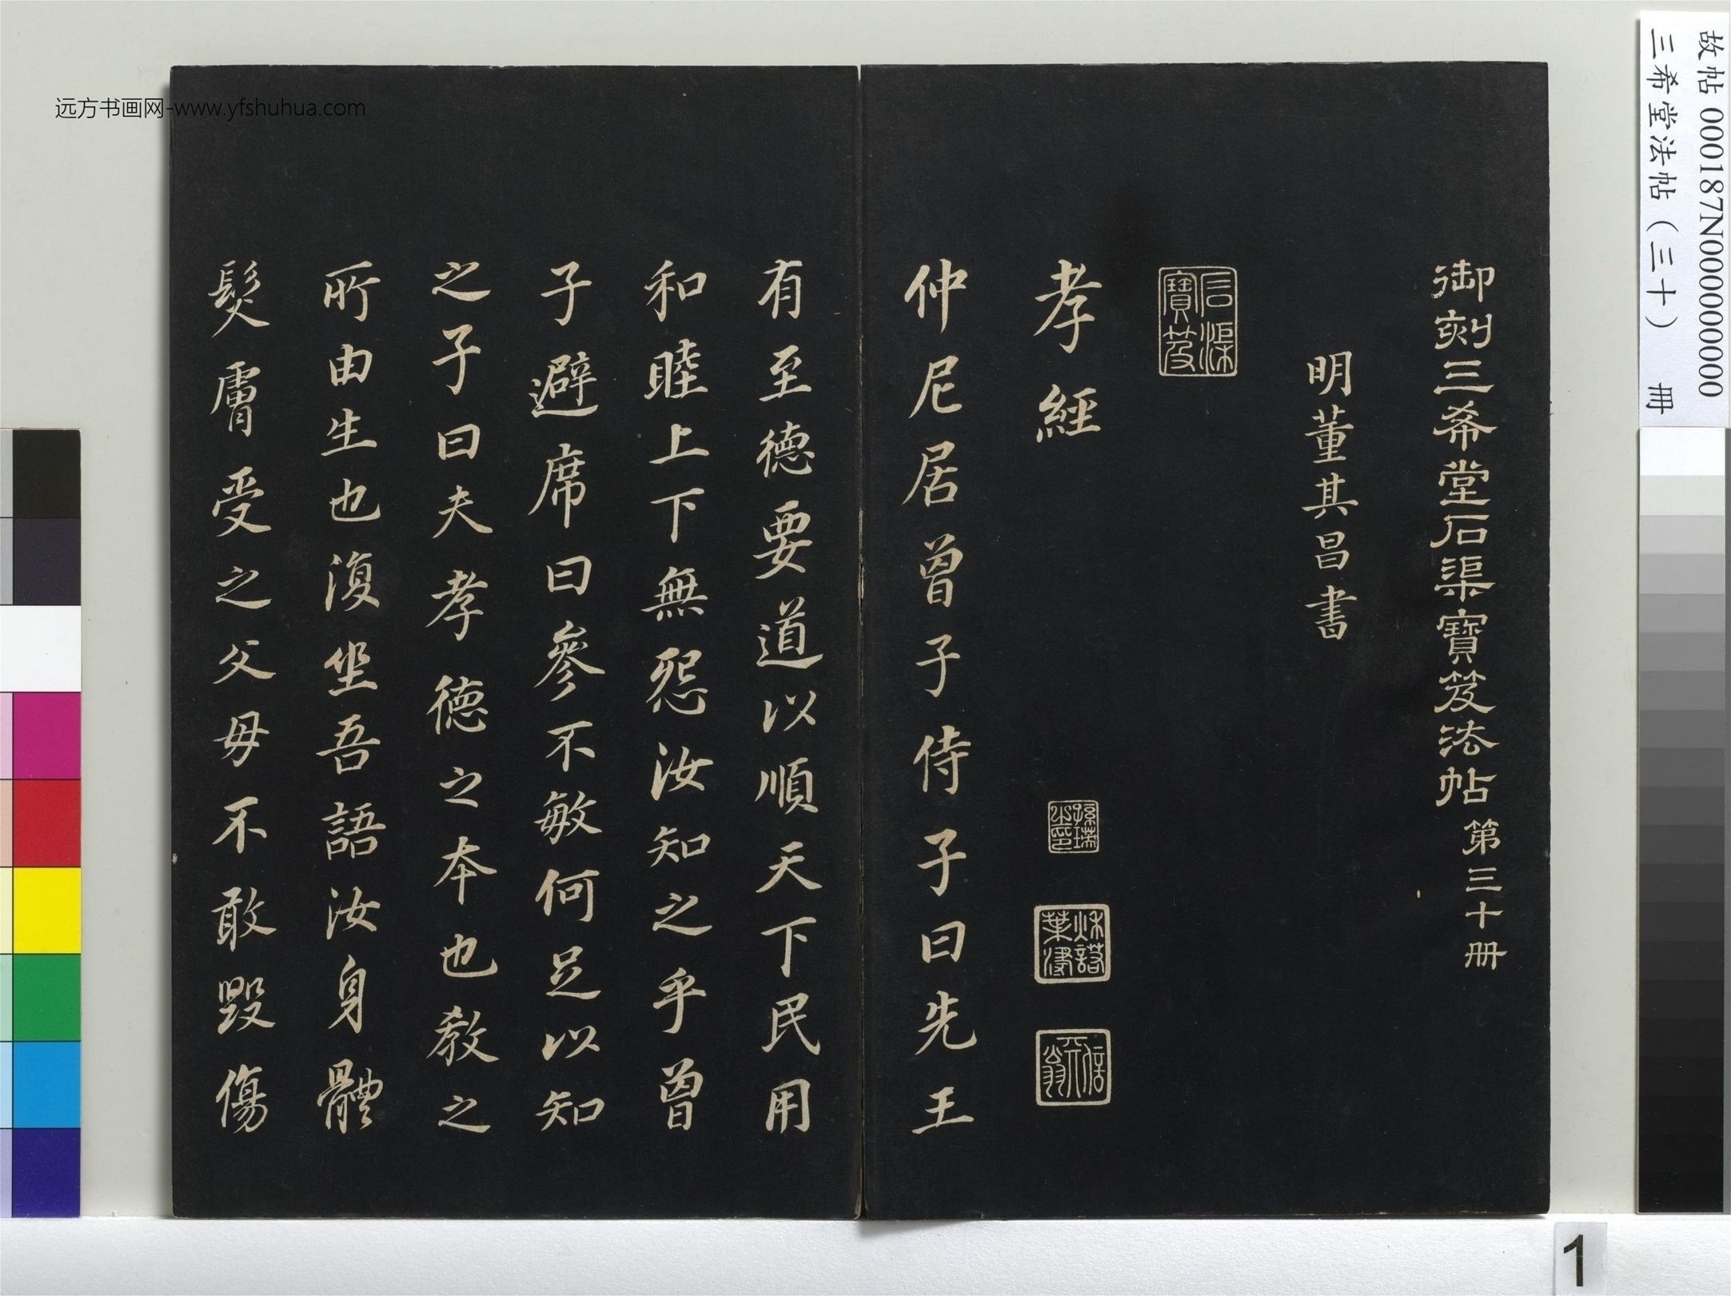 故帖 000187N000000000
三希堂法帖（三十） 冊
御刻三希堂石渠寶笈法帖 第三十册
明董其昌書
石渠寶笈
孝經
仲尼居曾子侍子曰先王
有至德要道以順天下民用
和睦上下無怨汝知之乎曾
子避席曰參不敏何足以知
之子曰夫孝德之本也教之
所由生也復坐吾語汝身體
髮膚受之父母不敢毀傷
远方书画网-www.yfshuhua.com
1